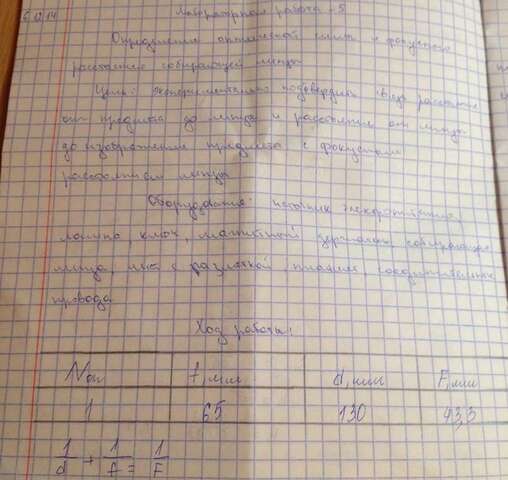 Лабораторная работа - 5
Определение оптической силы и фокусного
расстояния собирающей линзы
Цель: экспериментально подтвердить связь расстояния
от предмета до линзы и расстояния от линзы
до изображения предмета с фокусным
расстоянием линзы
Оборудование: источник электропитания,
лампа, ключ, собирающая
линза, с разметкой, соединительные
провода
Ход работы:
№оп f, мм d, мм F, мм
1 65 130 43,3
1/d + 1/f = 1/F